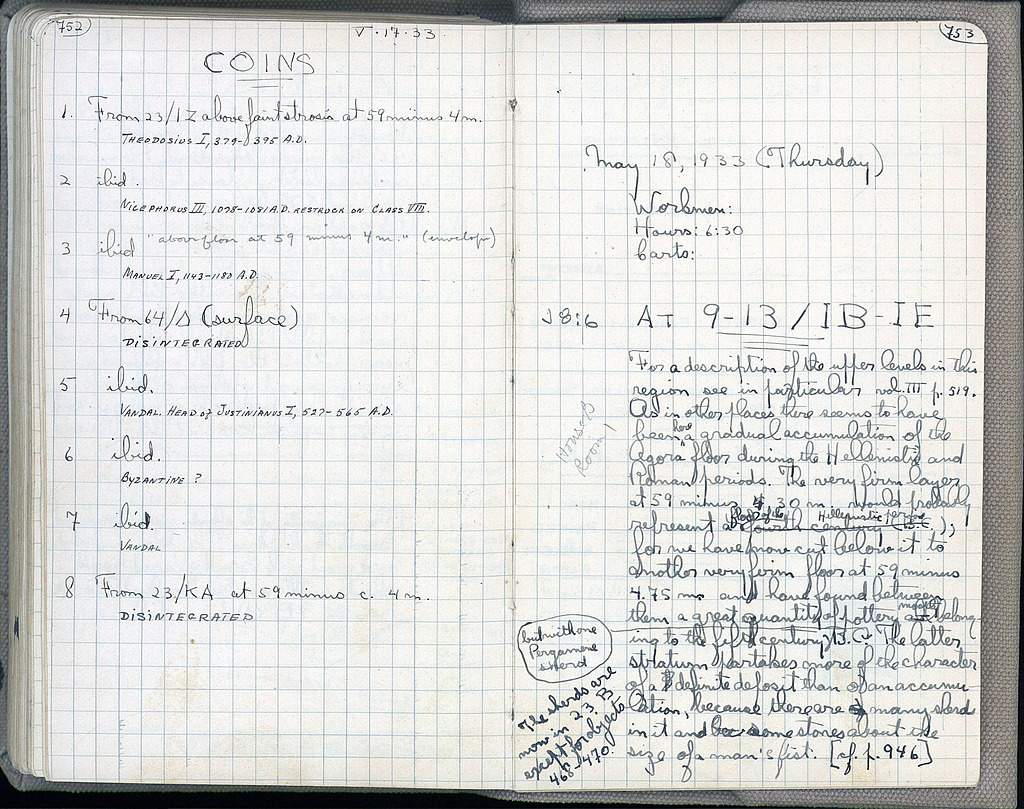 752
V·17·33
COINS
1. From 23/IZ above faint strosis at 59 minus 4 m.
THEODOSIUS I, 379-395 A.D.
2 ibid.
NICEPHORUS III, 1078-1081 A.D. RESTRUCK ON CLASS VIII.
3 ibid "above floor at 59 minus 4 m." (envelope)
MANUEL I, 1143-1180 A.D.
4 From 64/Δ (surface)
DISINTEGRATED
5 ibid.
VANDAL. HEAD OF JUSTINIANUS I, 527-565 A.D.
6 ibid.
BYZANTINE ?
7 ibid.
VANDAL
8 From 23/KA at 59 minus c. 4 m.
DISINTEGRATED
753
May 18, 1933 (Thursday)
Workmen:
Hours: 6:30
Carts:
J8:6 AT 9-13/IB-IE
For a description of the upper levels in this
region see in particular vol. III p. 519.
As in other places there seems to have
been here a gradual accumulation of the
Agora floor during the Hellenistic and
Roman periods. The very firm layer
at 59 minus 4.30 m would probably
represent a floor of the Hellenistic period fourth century (B.C.);
for we have now cut below it to
another very firm floor at 59 minus
4.75 m and have found between
them a great quantity of pottery mostly belong
ing to the fifth century B.C. The latter
stratum partakes more of the character
of a definite deposit than of an accumu
lation, because there are many sherds
in it and some stones about the
size of a man's fist. [cf. p. 946]
House B
Room 1
but with one
Pergamene
sherd
The sherds are
now in 23. B
except for objects
468-470.